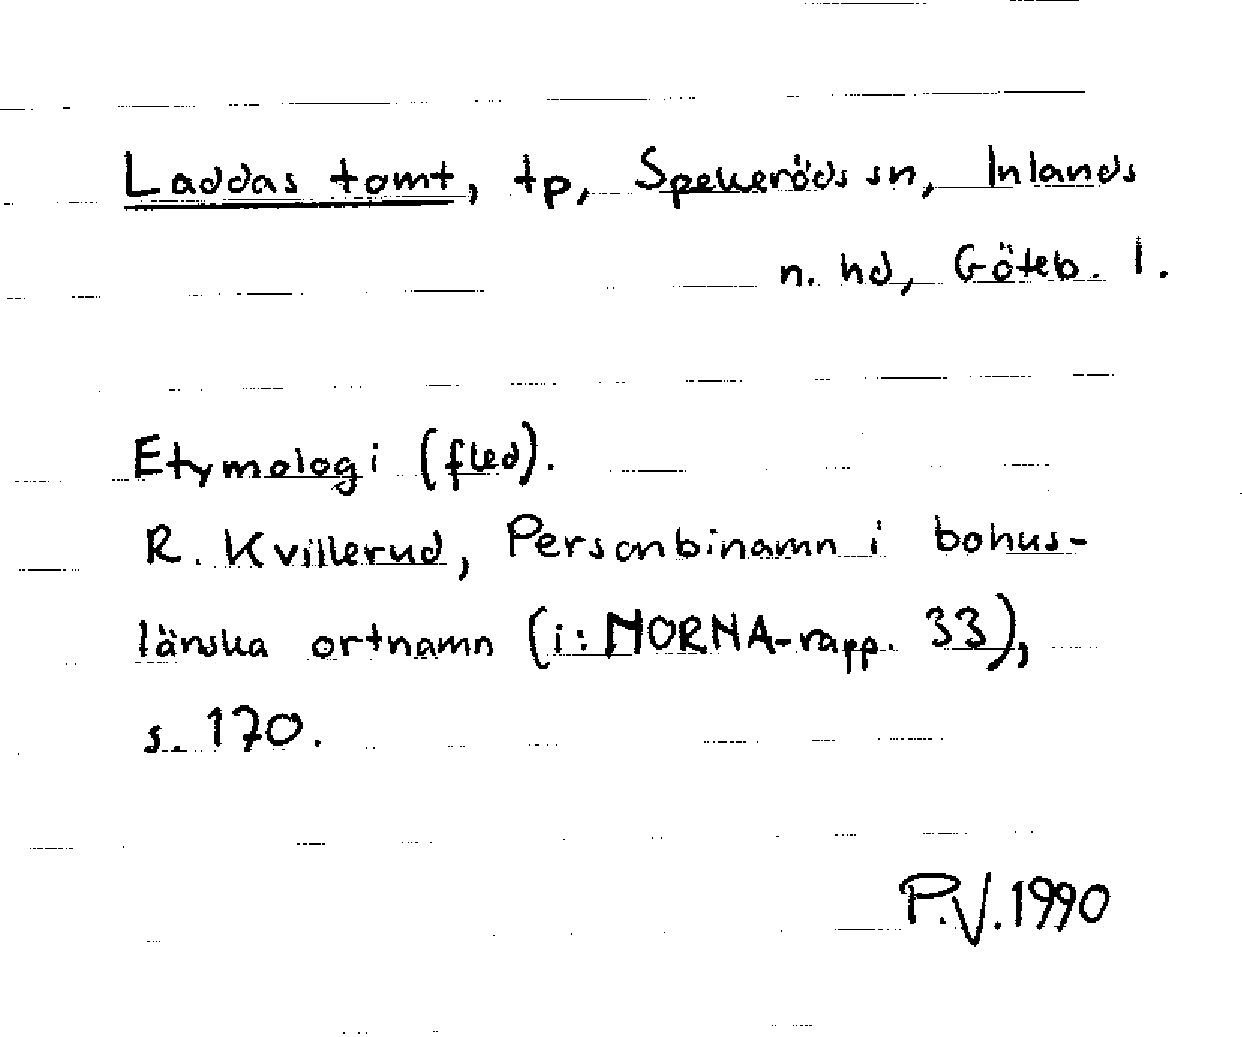 Laddas tomt, tp, Spekeröds sn, Inlands
n. hd, Göteb. l.
Etymologi (fled).
R. Kvillerud, Personbinamn i bohus-
länska ortnamn (i: NORNA-rapp. 33),
s. 170.
P.V. 1990